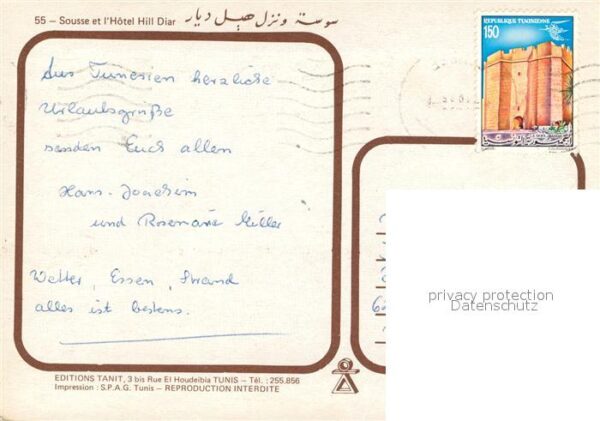 55 – Sousse et l'Hôtel Hill Diar سوسة ونزل هيل ديار
REPUBLIQUE TUNISIENNE
150
Aus Tunesien herzliche
Urlaubsgrüße
senden Euch allen
Hans-Joachim
und Rosemarie Hiller
Wetter, Essen, Strand
alles ist bestens.
privacy protection
Datenschutz
EDITIONS TANIT, 3 bis Rue El Houdeibia TUNIS – Tél. : 255.856
Impression : S.P.A.G. Tunis – REPRODUCTION INTERDITE